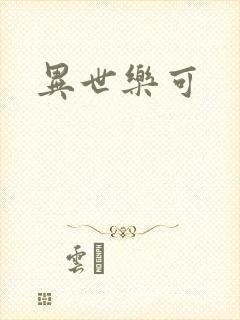 異世樂可
雲